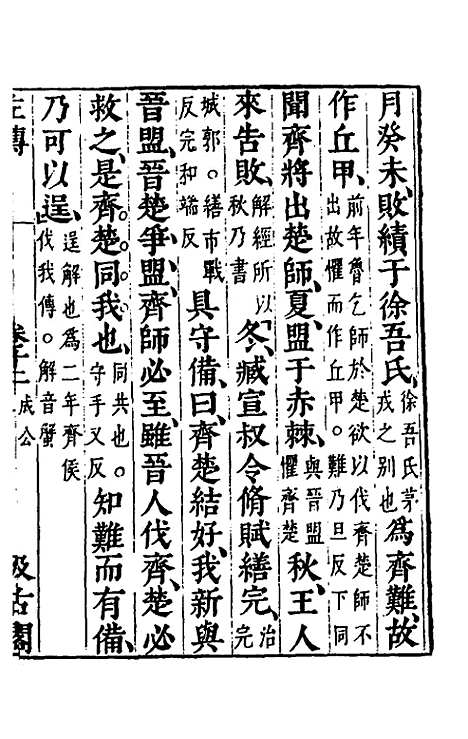 月癸未、敗績于徐吾氏、徐吾氏茅戎之別也爲齊難、故
作丘甲、前年魯乞師於楚欲以伐齊楚師不出故懼而作丘甲。難乃旦反下同
聞齊將出楚師、夏、盟于赤棘、與晉盟懼齊楚秋、王人
來告敗、解經所以秋乃書冬、臧宣叔令脩賦繕完、治完
城郭。繕市戰反完和端反具守備、曰、齊楚結好、我新與
晉盟、晉楚爭盟、齊師必至、雖晉人伐齊、楚必
救之、是齊楚同我也、同共也。守手又反。知難而有備、
乃可以逞、逞解也爲二年齊侯伐我傳。解音蟹
左傳 卷十二 成公 汲古閣